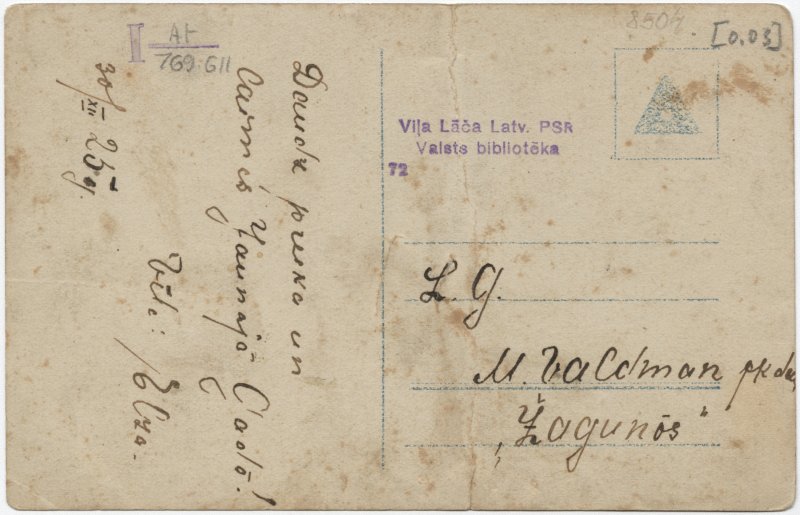 I At
769.611
8504
[0.03]
Viļa Lāča Latv. PSR
Valsts bibliotēka
72
Daudz prieka un
Laimes Jaunajā Gadā!
Elza.
30/XII 25 g.
L. G.
M. Valdman
„Žagunōs"